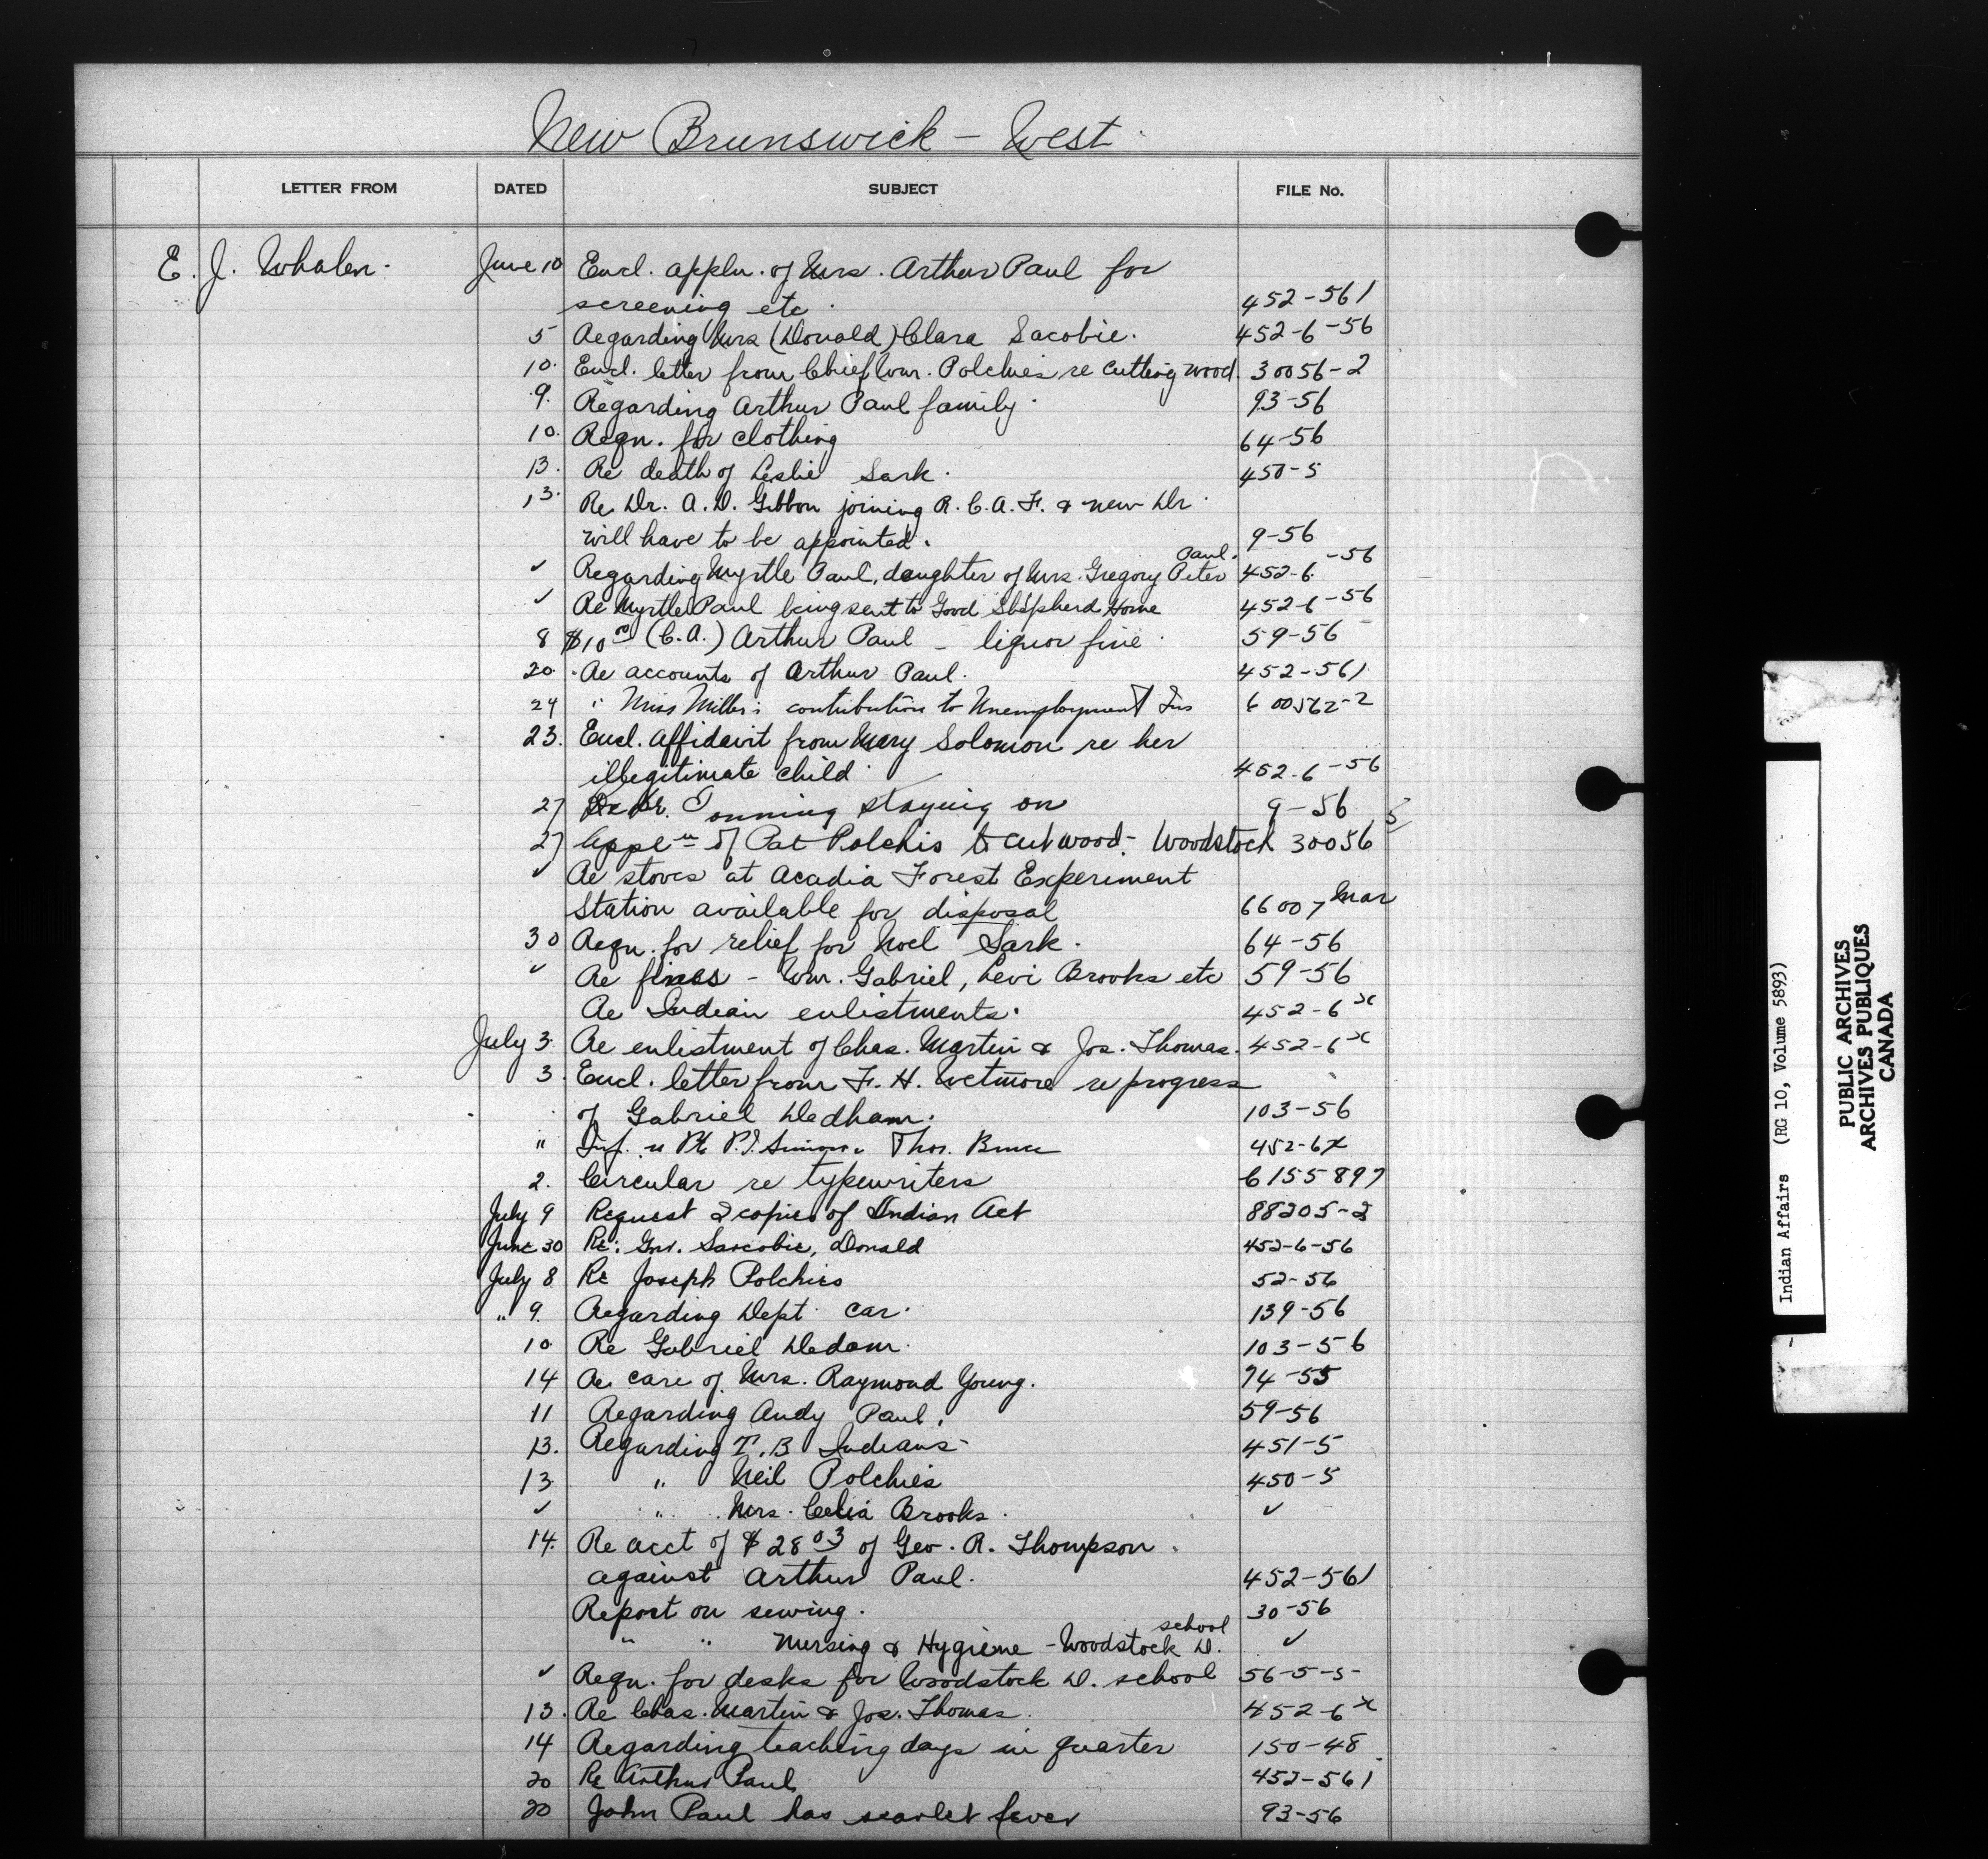 New Brunswick - West.
LETTER FROM DATED SUBJECT FILE No.
E. J. Whalen. June 10 Encl. appln. of Mrs. Arthur Paul for
screening etc. 452-561
5 Regarding Mrs (Donald) Clara Sacobie. 452-6-56
10. Encl. letter from Chief Wm. Polchies re cutting wood. 30056-2
9. Regarding Arthur Paul family. 93-56
10. Reqn. for clothing 64-56
13. Re death of Leslie Sark. 450-5
13. Re Dr. A. D. Gibbon joining R.C.A.F. & new Dr.
will have to be appointed. 9-56
Paul.
✓ Regarding Myrtle Paul, daughter of Mrs. Gregory Peter 452-6-56
✓ Re Myrtle Paul being sent to Good Shepherd Home 452-6-56
8 $10 (C.A.) Arthur Paul - liquor fine. 59-56
20. Re accounts of Arthur Paul. 452-561
24 " Miss Miller's contribution to Unemployment Ins 600562-2
23. Encl. affidavit from Mary Solomon re her
illegitimate child. 452-6-56
27 Re Dr. staying on 9-56
27 Appln of Pat Polchis to cut wood - Woodstock 30056
✓ Re stoves at Acadia Forest Experiment
Station available for disposal 66007 Mar
30 Reqn. for relief for Noel Sark. 64-56
✓ Re fines - Wm. Gabriel, Levi Brooks etc 59-56
Re Indian enlistments. 452-6x
July 3. Re enlistment of Chas. Martin & Jos. Thomas. 452-6x
3. Encl. letter from F. H. Wetmore re progress
of Gabriel Dedham. 103-56
" Inf. re Pte P.J. Simon Thos. 452-6x
2. Circular re typewriters 6155897
July 9 Request 2 copies of Indian Act 88205-2
June 30 Re: Gnr. Sascobie, Donald 452-6-56
July 8 Re Joseph Polchies 52-56
" 9. Regarding Dept. car. 139-56
10. Re Gabriel Dedam. 103-56
14 Re care of Mrs. Raymond Young. 74-55
11 Regarding Andy Paul. 59-56
13. Regarding T.B Indians - 451-5
13. " Neil Polchies 450-5
✓ " Mrs. Celia Brooks. ✓
14. Re acct of $28 03 of Geo. R. Thompson
against Arthur Paul. 452-561
Report on sewing. 30-56
school
" " Nursing & Hygiene - Woodstock D. ✓
✓ Reqn. for desks for Woodstock D. school 56-5-5-
13. Re Chas. Martin & Jos. Thomas. 452-6x
14 Regarding teaching days in quarter 150-48
20 Re Arthur Paul 452-561
20 John Paul has scarlet fever 93-56
Indian Affairs (RG 10, Volume 5893)
PUBLIC ARCHIVES
ARCHIVES PUBLIQUES
CANADA